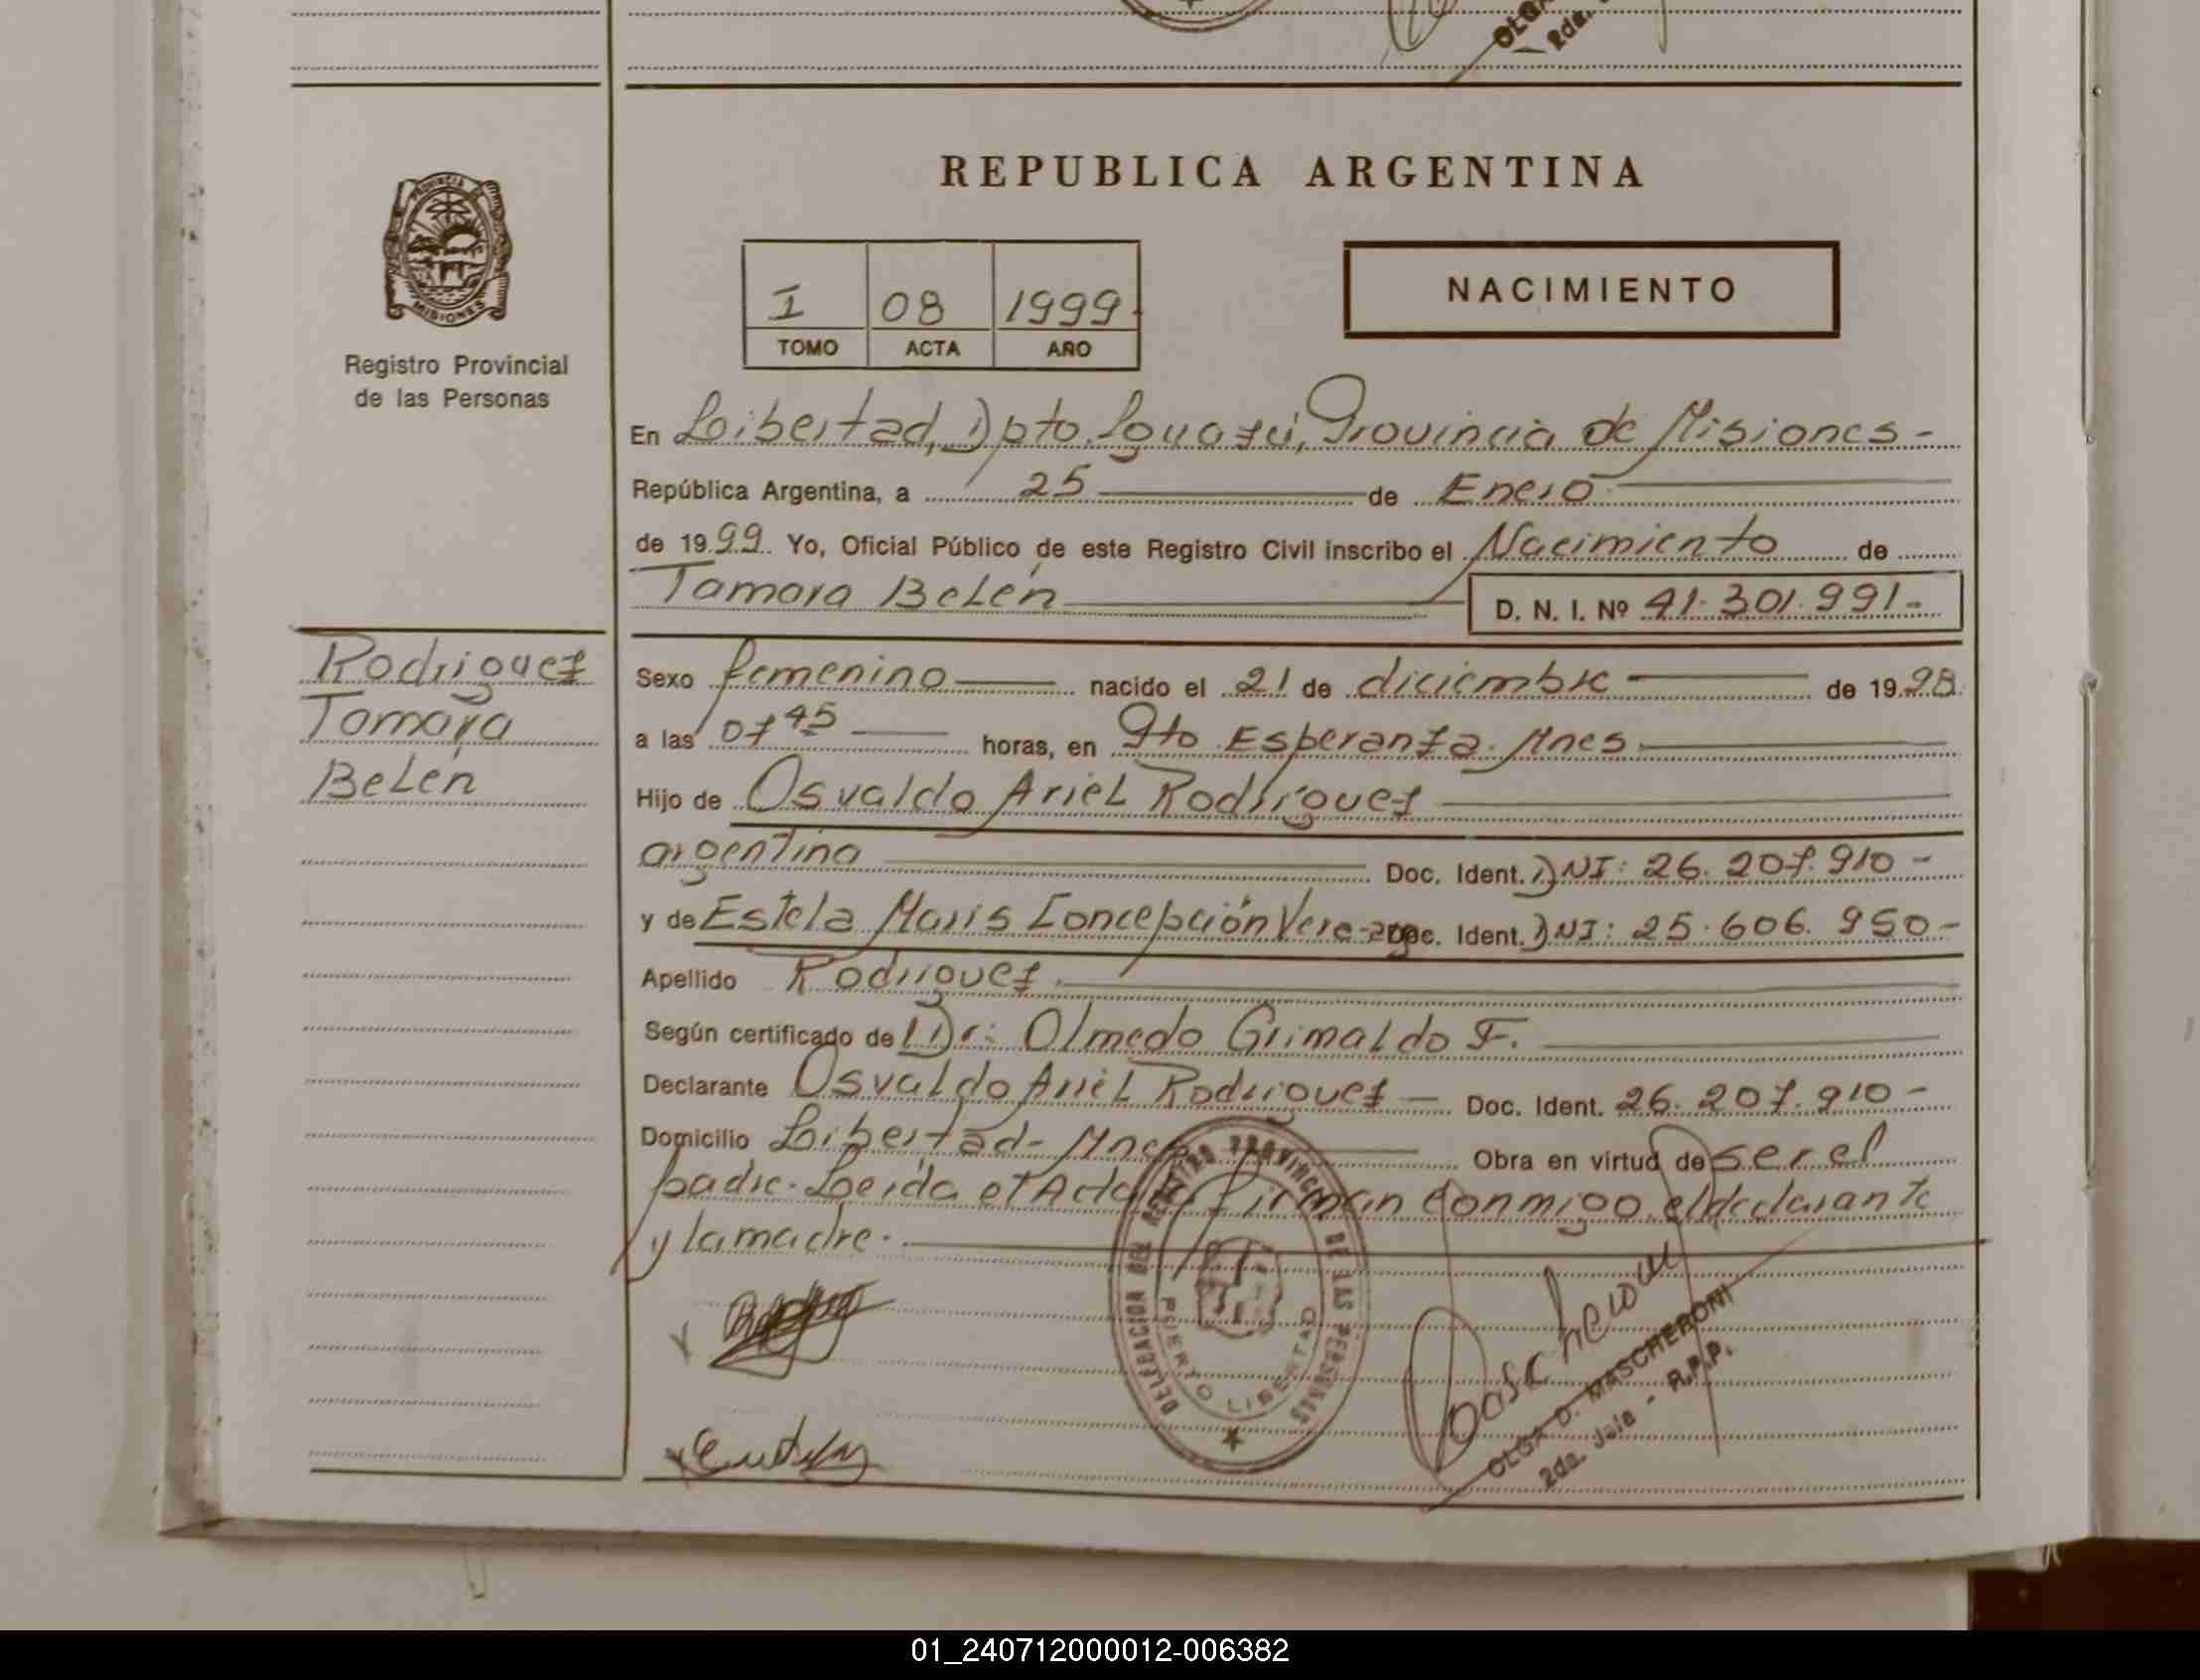 OLGA
2da.
REPUBLICA ARGENTINA
PROVINCIA DE
MISIONES
Registro Provincial
de las Personas
I 08 1999
TOMO ACTA AÑO
NACIMIENTO
En Libertad, Dpto. Iguazú, Provincia de Misiones -
República Argentina, a 25 de Enero
de 1999. Yo, Oficial Público de este Registro Civil inscribo el Nacimiento de
Tamara Belén D. N. I. Nº 41.301.991-
Rodriguez
Tamara
Belén
Sexo femenino nacido el 21 de diciembre de 1998
a las 07 45 horas, en Pto Esperanza. Mnes.
Hijo de Osvaldo Ariel Rodríguez
argentina Doc. Ident. DNI: 26.207.910-
y de Estela Maris Concepción Doc. Ident. DNI: 25.606.950-
Apellido Rodriguez.
Según certificado de Dr: Olmedo Grimaldo F.
Declarante Osvaldo Ariel Rodriguez - Doc. Ident. 26.207.910-
Domicilio Libertad- Mnes Obra en virtud de ser el
padre. Leida el Acta Firman conmigo el declarante
y la madre.
DELEGACION DEL REGISTRO PROVINCIAL DE LAS PERSONAS
PUERTO LIBERTAD
OLGA D. MASCHERONI
2da. Jefa - R.P.P.
01_240712000012-006382